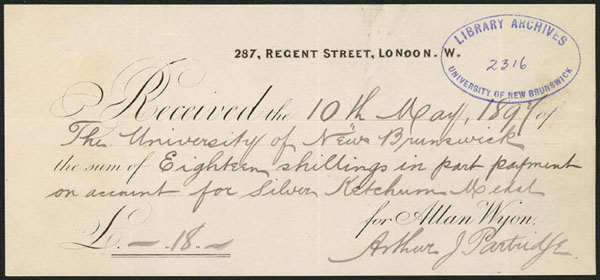 287, REGENT STREET, LONDON. W.
LIBRARY ARCHIVES
2316
UNIVERSITY OF NEW BRUNSWICK
Received the 10th May, 1897 of
The University of New Brunswick
the sum of Eighteen shillings in part payment
on account for Silver Ketchum Medal
for Allan Wyon.
£ — 18 —
Arthur J. Partridge